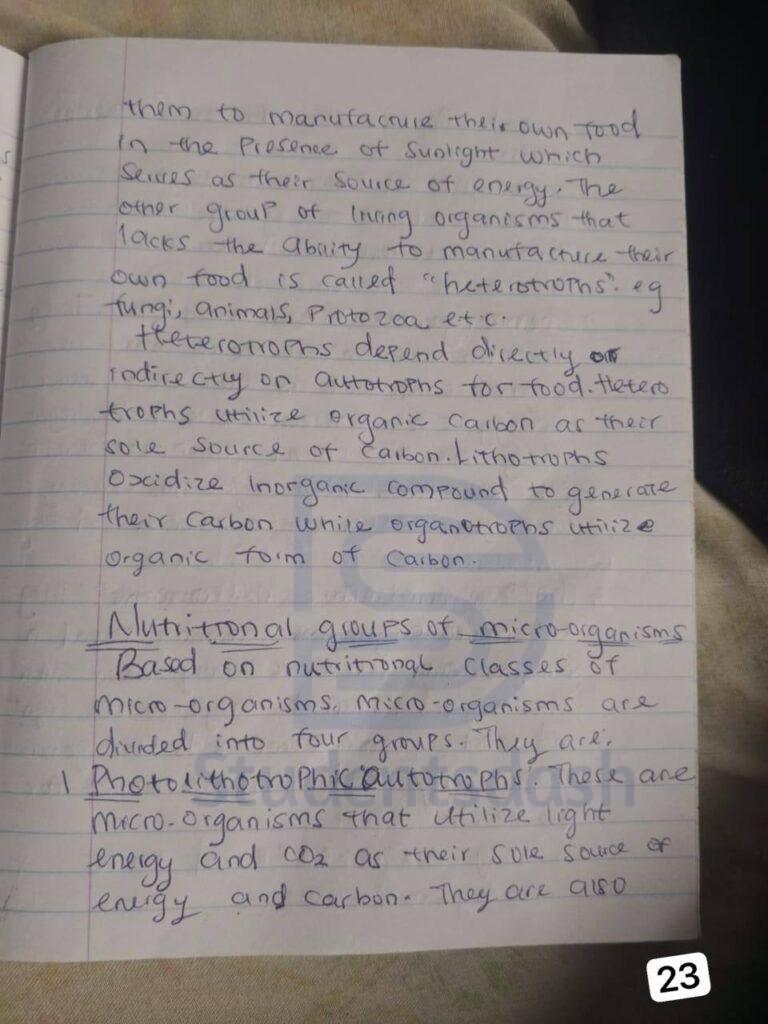 them to manufacture their own food
in the Presence of Sunlight which
Serves as their Source of energy. The
other group of living organisms that
lacks the ability to manufacture their
own food is called "heterotrophs". eg
fungi, animals, Protozoa etc.
Heterotrophs depend directly or
indirectly on autotrophs for food. Hetero
trophs utilize organic Carbon as their
sole source of Carbon. Lithotrophs
Oxidize Inorganic compound to generate
their Carbon while organotrophs utilize
organic form of Carbon.
Nutritional groups of micro-organisms
Based on nutritional classes of
micro-organisms. micro-organisms are
divided into four groups. They are.
1 Photolithotrophic autotrophs. These are
micro-organisms that utilize light
energy and CO2 as their Sole Source of
energy and carbon. They are also
Studentsdash
23